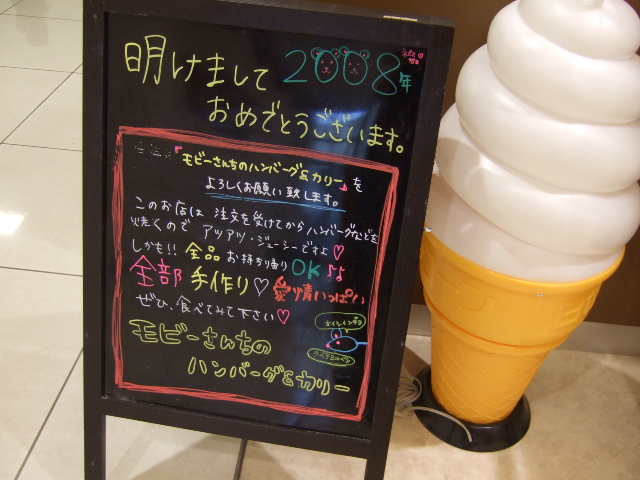 明けまして 2008年
おめでとうございます。
『モビーさんちのハンバーグ&カリー』を
よろしくお願い致します。
このお店は 注文を受けてからハンバーグなどを
焼くので アツアツ・ジューシーですよ♡
しかも!! 全品 お持ち帰りOK♪♪
全部 手作り♡愛情いっぱい
ぜひ、食べてみて下さい♡
モビーさんちの
ハンバーグ&カリー